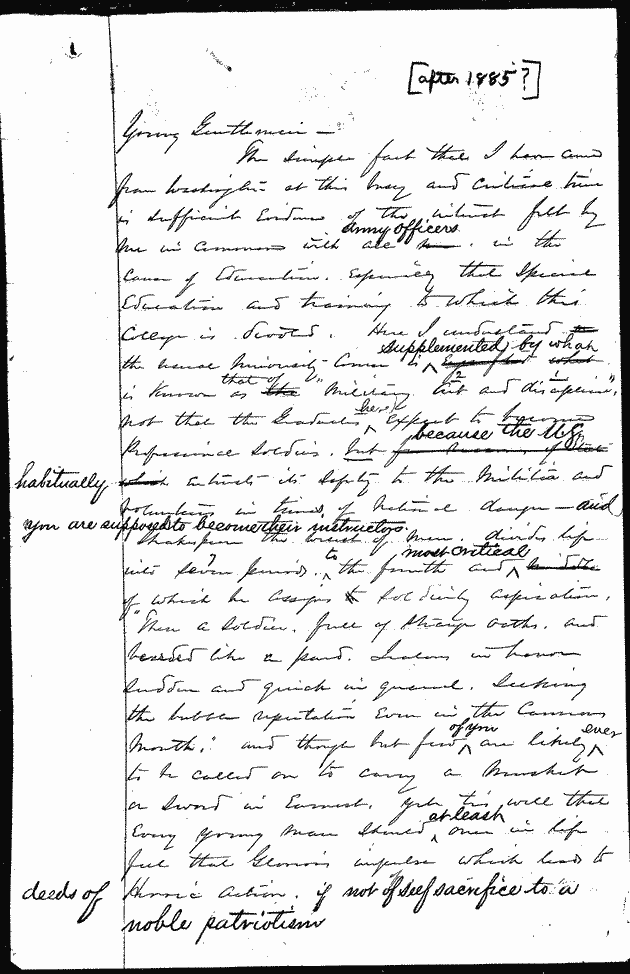 1
[after 1885?]
Young Gentlemen —
The simple fact that I have come
from Washington at this busy and critical time
is sufficient Evidence of the interest felt by
army officers
me in common with all men. in the
Cause of Education. Especially that Special
Education and training to which this
College is devoted. Here I understand the
supplemented by what
the usual University Course is what
that of
is Known as the "Military Art and discipline",
here
not that the Graduates Expect to become
because the U.S.
Professional Soldiers. but
habitually which entrusts its Safety to the Militia and
Volunteers in times of National danger — and
you are supposed to become their instructors.
Shakespeare the wisest of men. divides life
to most critical
into Seven periods. the fourth and middle
of which he assigns to Soldierly aspiration.
"Then a Soldier. full of strange oaths. and
bearded like a pard. Jealous in honor
Sudden and quick in quarrel. Seeking
the bubble reputation Even in the Cannons
of you ever
Mouth." and though but few are likely
to be called on to carry a Musket
or Sword in Earnest. yet tis well that
at least
Every young man should once in life
feel that Glorious impulse which leads to
deeds of Heroic action. if not of self sacrifice to a
noble patriotism